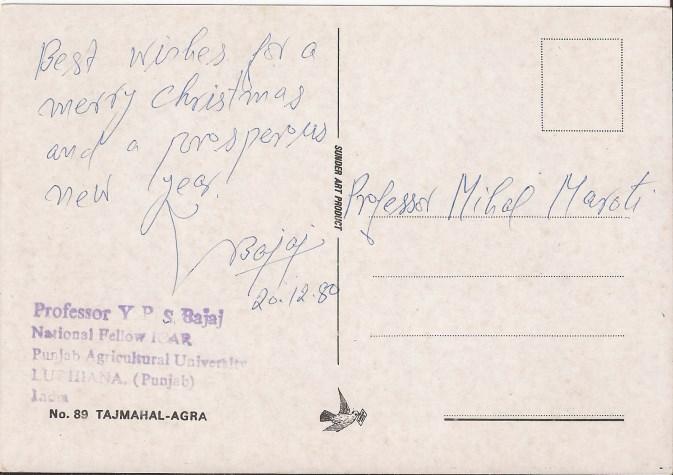 Best wishes for a
merry Christmas
and a prosperous
new year.
Bajaj
20.12.80
Professor Y P S Bajaj
National Fellow ICAR
Punjab Agricultural University
LUDHIANA. (Punjab)
India
No. 89 TAJMAHAL-AGRA
SUNDER ART PRODUCT
Professor Mihal Maroti